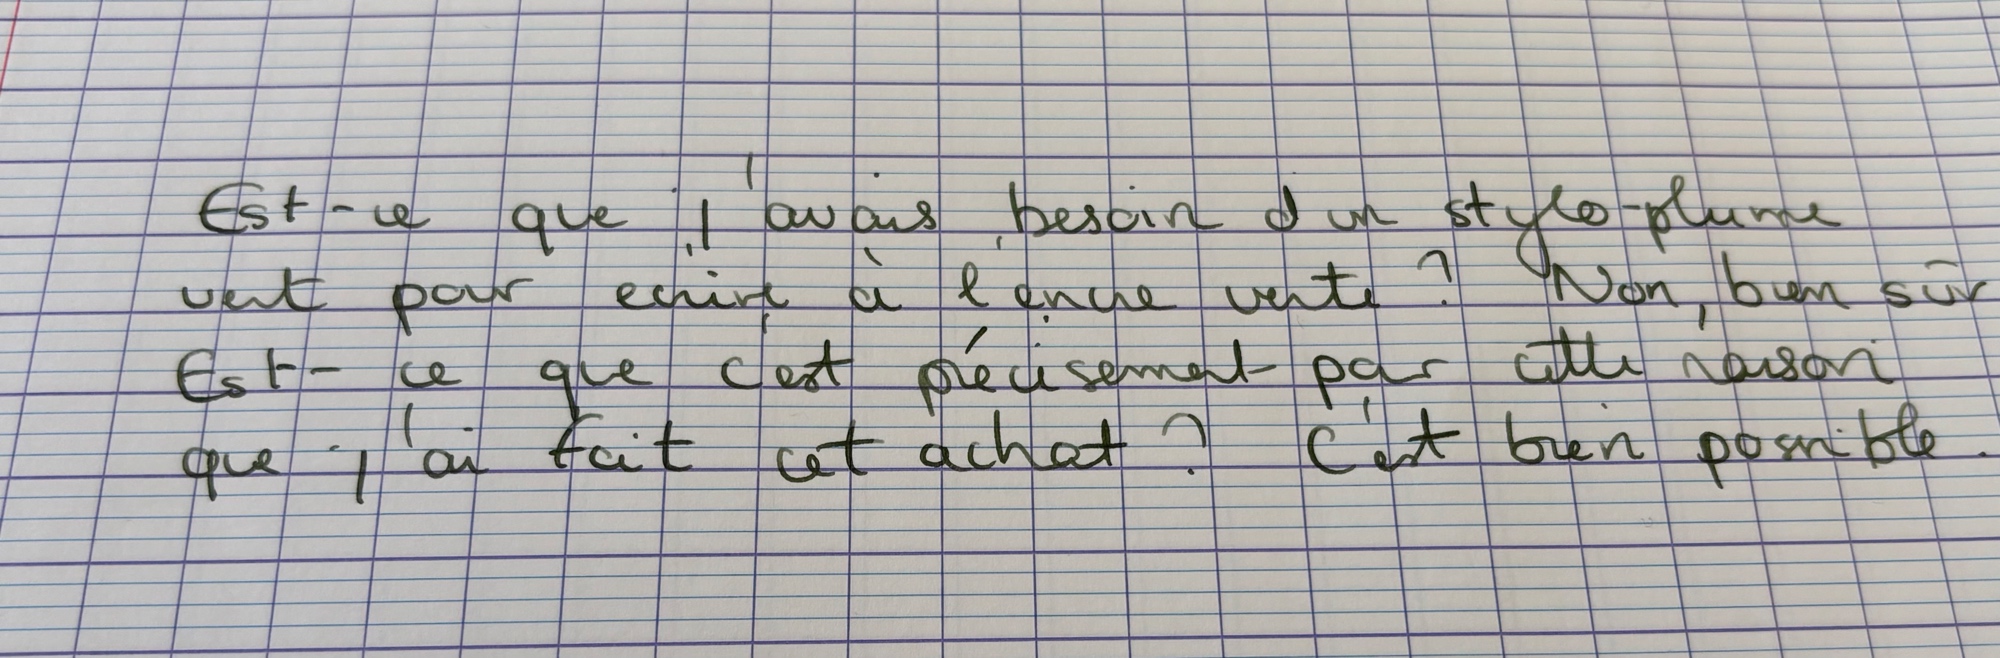 Est-ce que j'avais besoin d'un stylo-plume
vert pour ecrire à l'encre verte ? Non, bien sûr
Est-ce que c'est précisement par cette raison
que j'ai fait cet achat ? C'est bien possible.